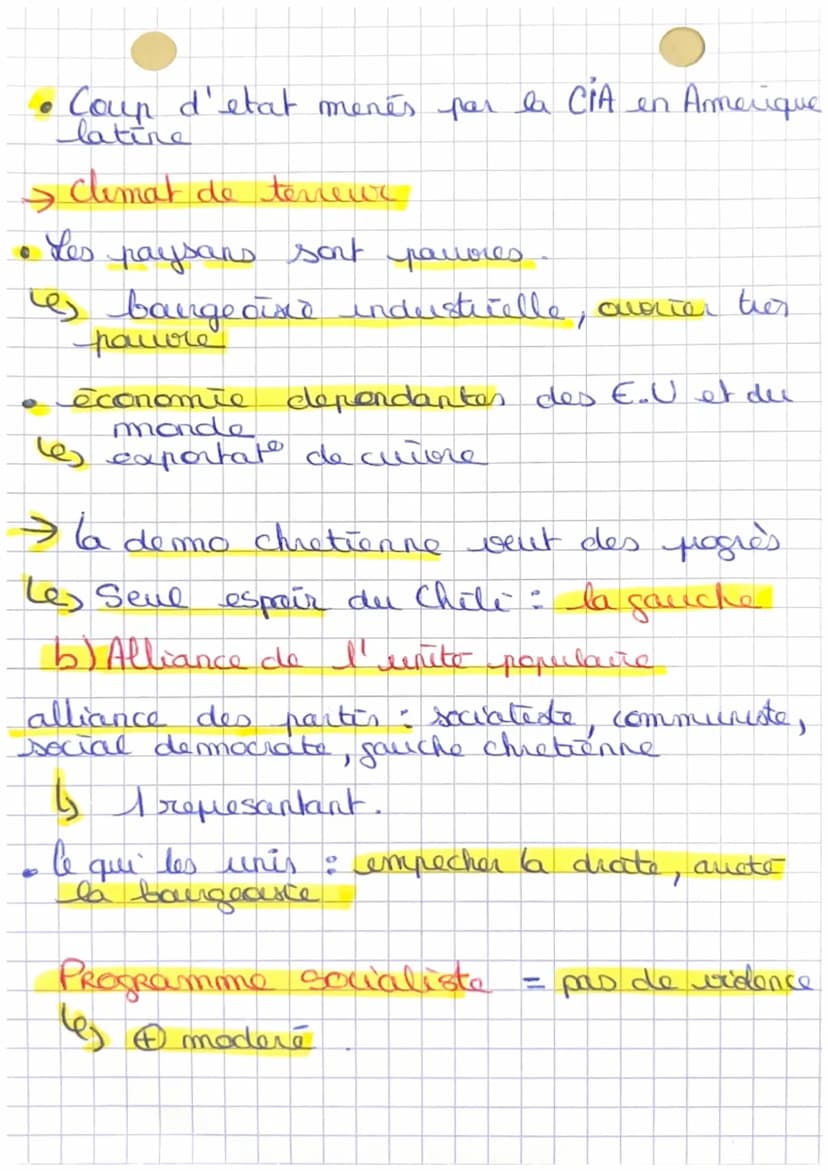 • Coup d'etat menés par la CIA en Amerique
latine
→ Climat de terreur
• Les paysans sont pauvres.
↳ bourgeoisie industrielle, ouvrier tres
pauvre
• économie dependantes des E.U et du
monde
↳ exportat° de cuivre
→ la demo chretienne veut des pogrès
↳ Seul espoir du Chili : la gauche
b) Alliance de l'unite populaire
alliance des partis : socialiste, communiste,
social democrate, gauche chretiénne
↳ 1 represantant.
• Ce qui les unis : empecher la droite,
la bourgeoisie
Programme socialiste = pas de violence
↳ ⊕ moderé.